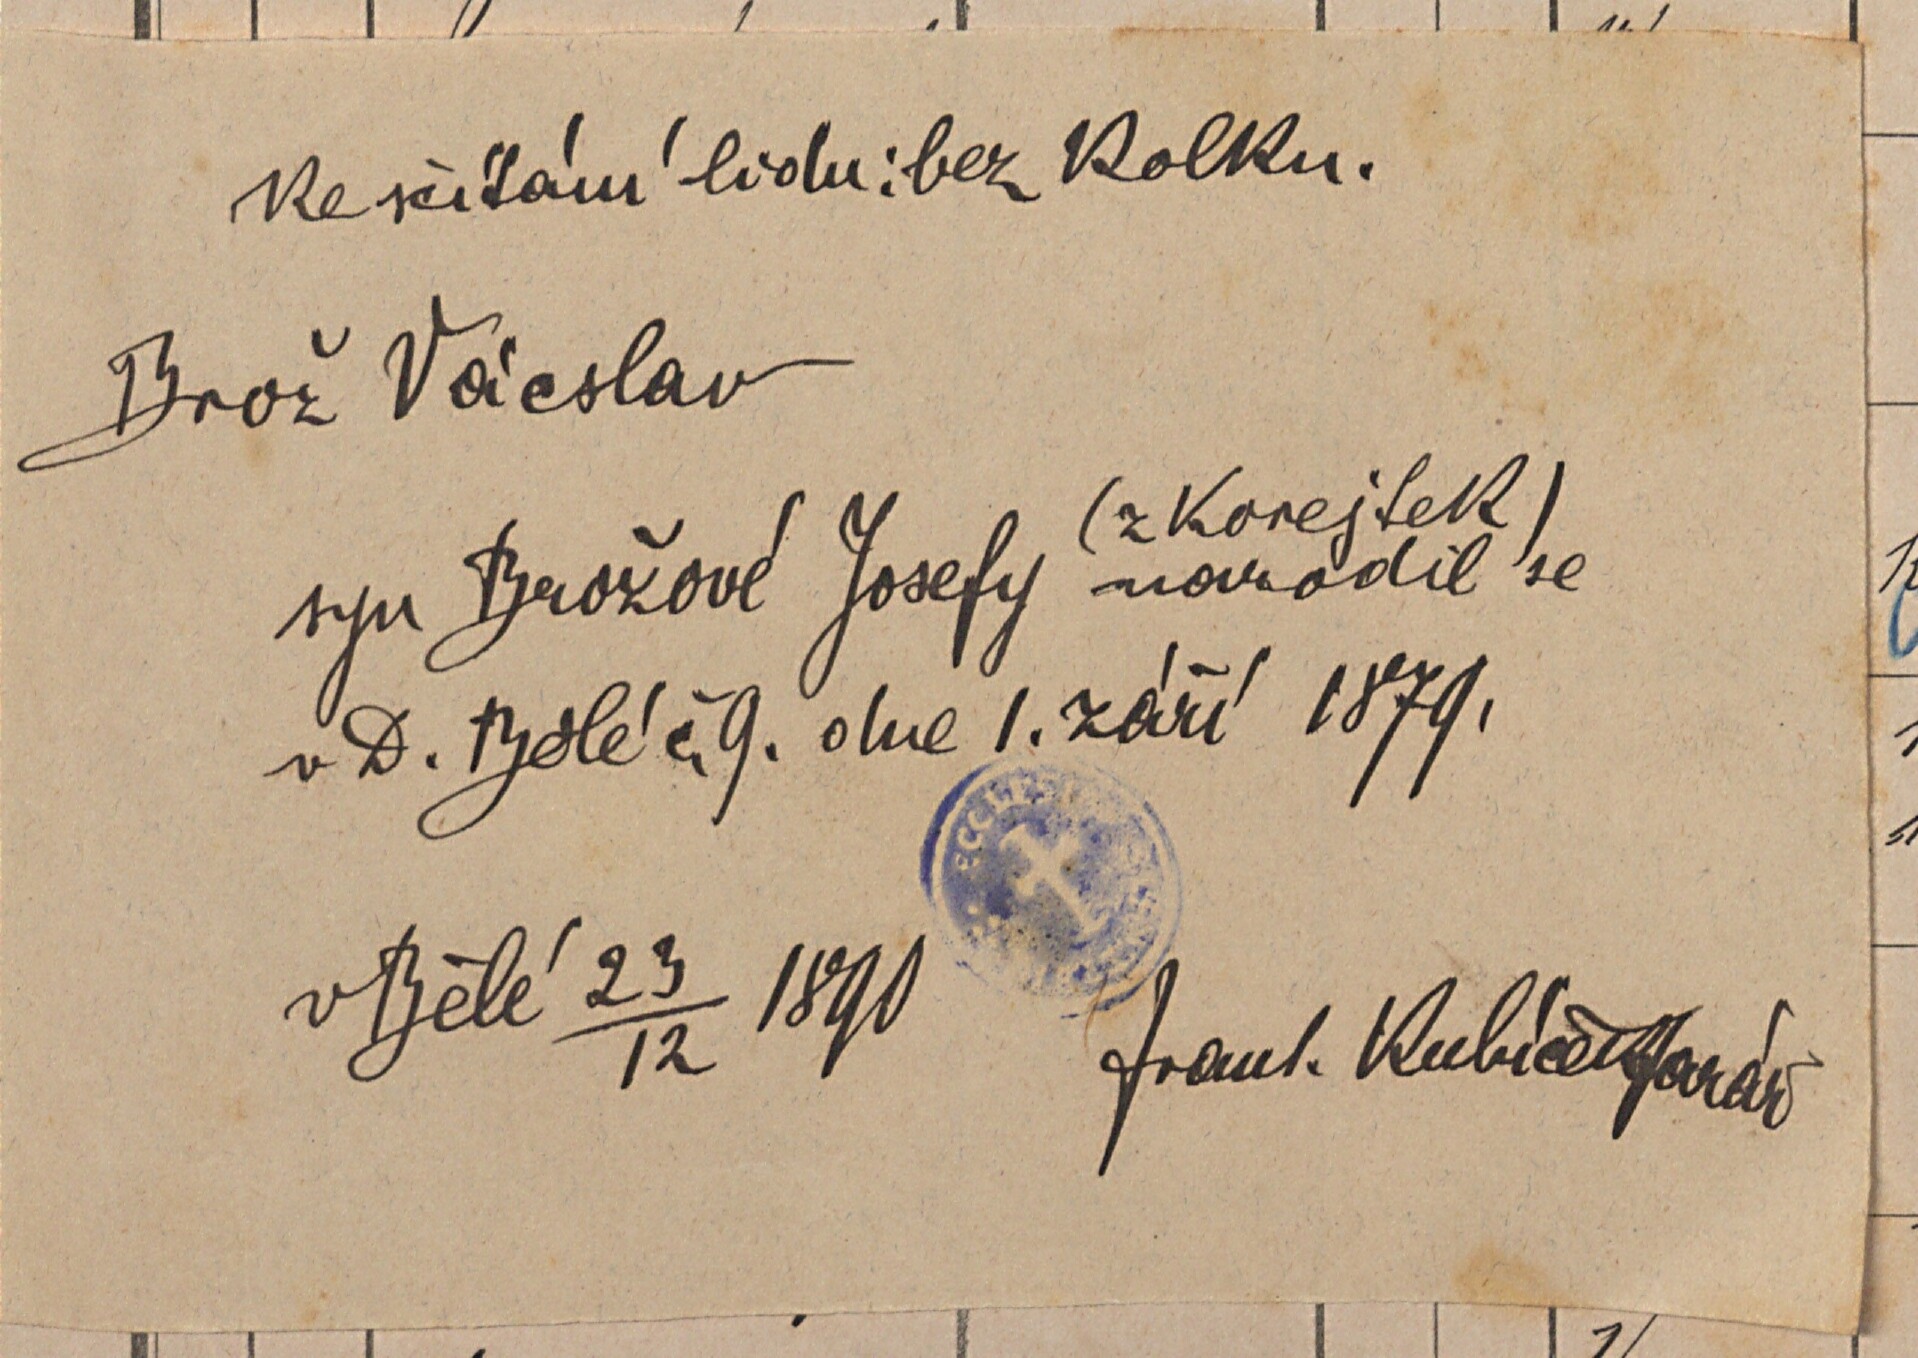 Ke sčítání lidu: bez kolku.
Brož Václav
syn Brožové Josefy (z Korejtek) narodil se
v D. Bělé č. 9. dne 1. září 1879.
ECCLES
v Bělé 23/12 1890
Frant. Kubíček farář